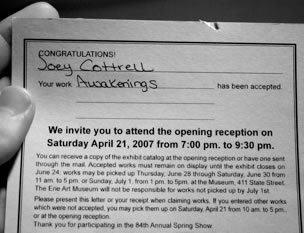 CONGRATULATIONS!
Joey Cottrell
Your work Awakenings has been accepted.
We invite you to attend the opening reception on
Saturday April 21, 2007 from 7:00 pm. to 9:30 pm.
You can receive a copy of the exhibit catalog at the opening reception or have one sent
through the mail. Accepted works must remain on display until the exhibit closes on
June 24. works may be picked up Thursday, June 28 through Saturday, June 30 from
11 am. to 5 pm. or Sunday, July 1. from 1 pm. to 5pm. at the Museum, 411 State Street.
The Erie Art Museum will not be responsible for works not picked up by July 1st.
Please present this letter or your receipt when claiming works. If you entered other works
which were not accepted, you may pick them up on Saturday, April 21 from 10 am. to 5 pm.
or at the opening reception.
Thank you for participating in the 84th Annual Spring Show.